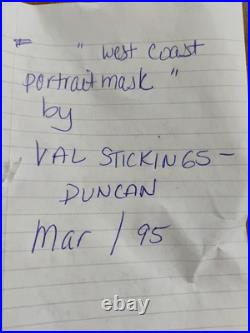 " West Coast
portrait mask "
by
VAL STICKINGS -
DUNCAN
Mar / 95
thcboxs.com